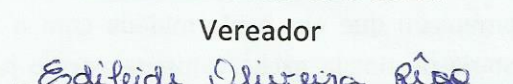 Vereador
Edileide Oliveira